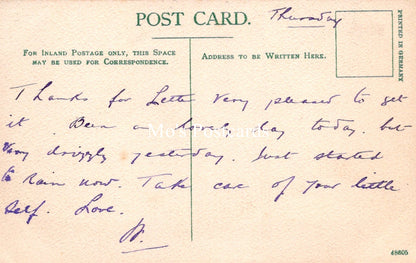 POST CARD.
Thursday
FOR INLAND POSTAGE ONLY, THIS SPACE
MAY BE USED FOR CORRESPONDENCE.
ADDRESS TO BE WRITTEN HERE.
PRINTED IN GERMANY
Thanks for Letter very pleased to get
it. Been a lovely day today. but
very drizzly yesterday. Just started
to rain now. Take care of your little
self. Love.
48605